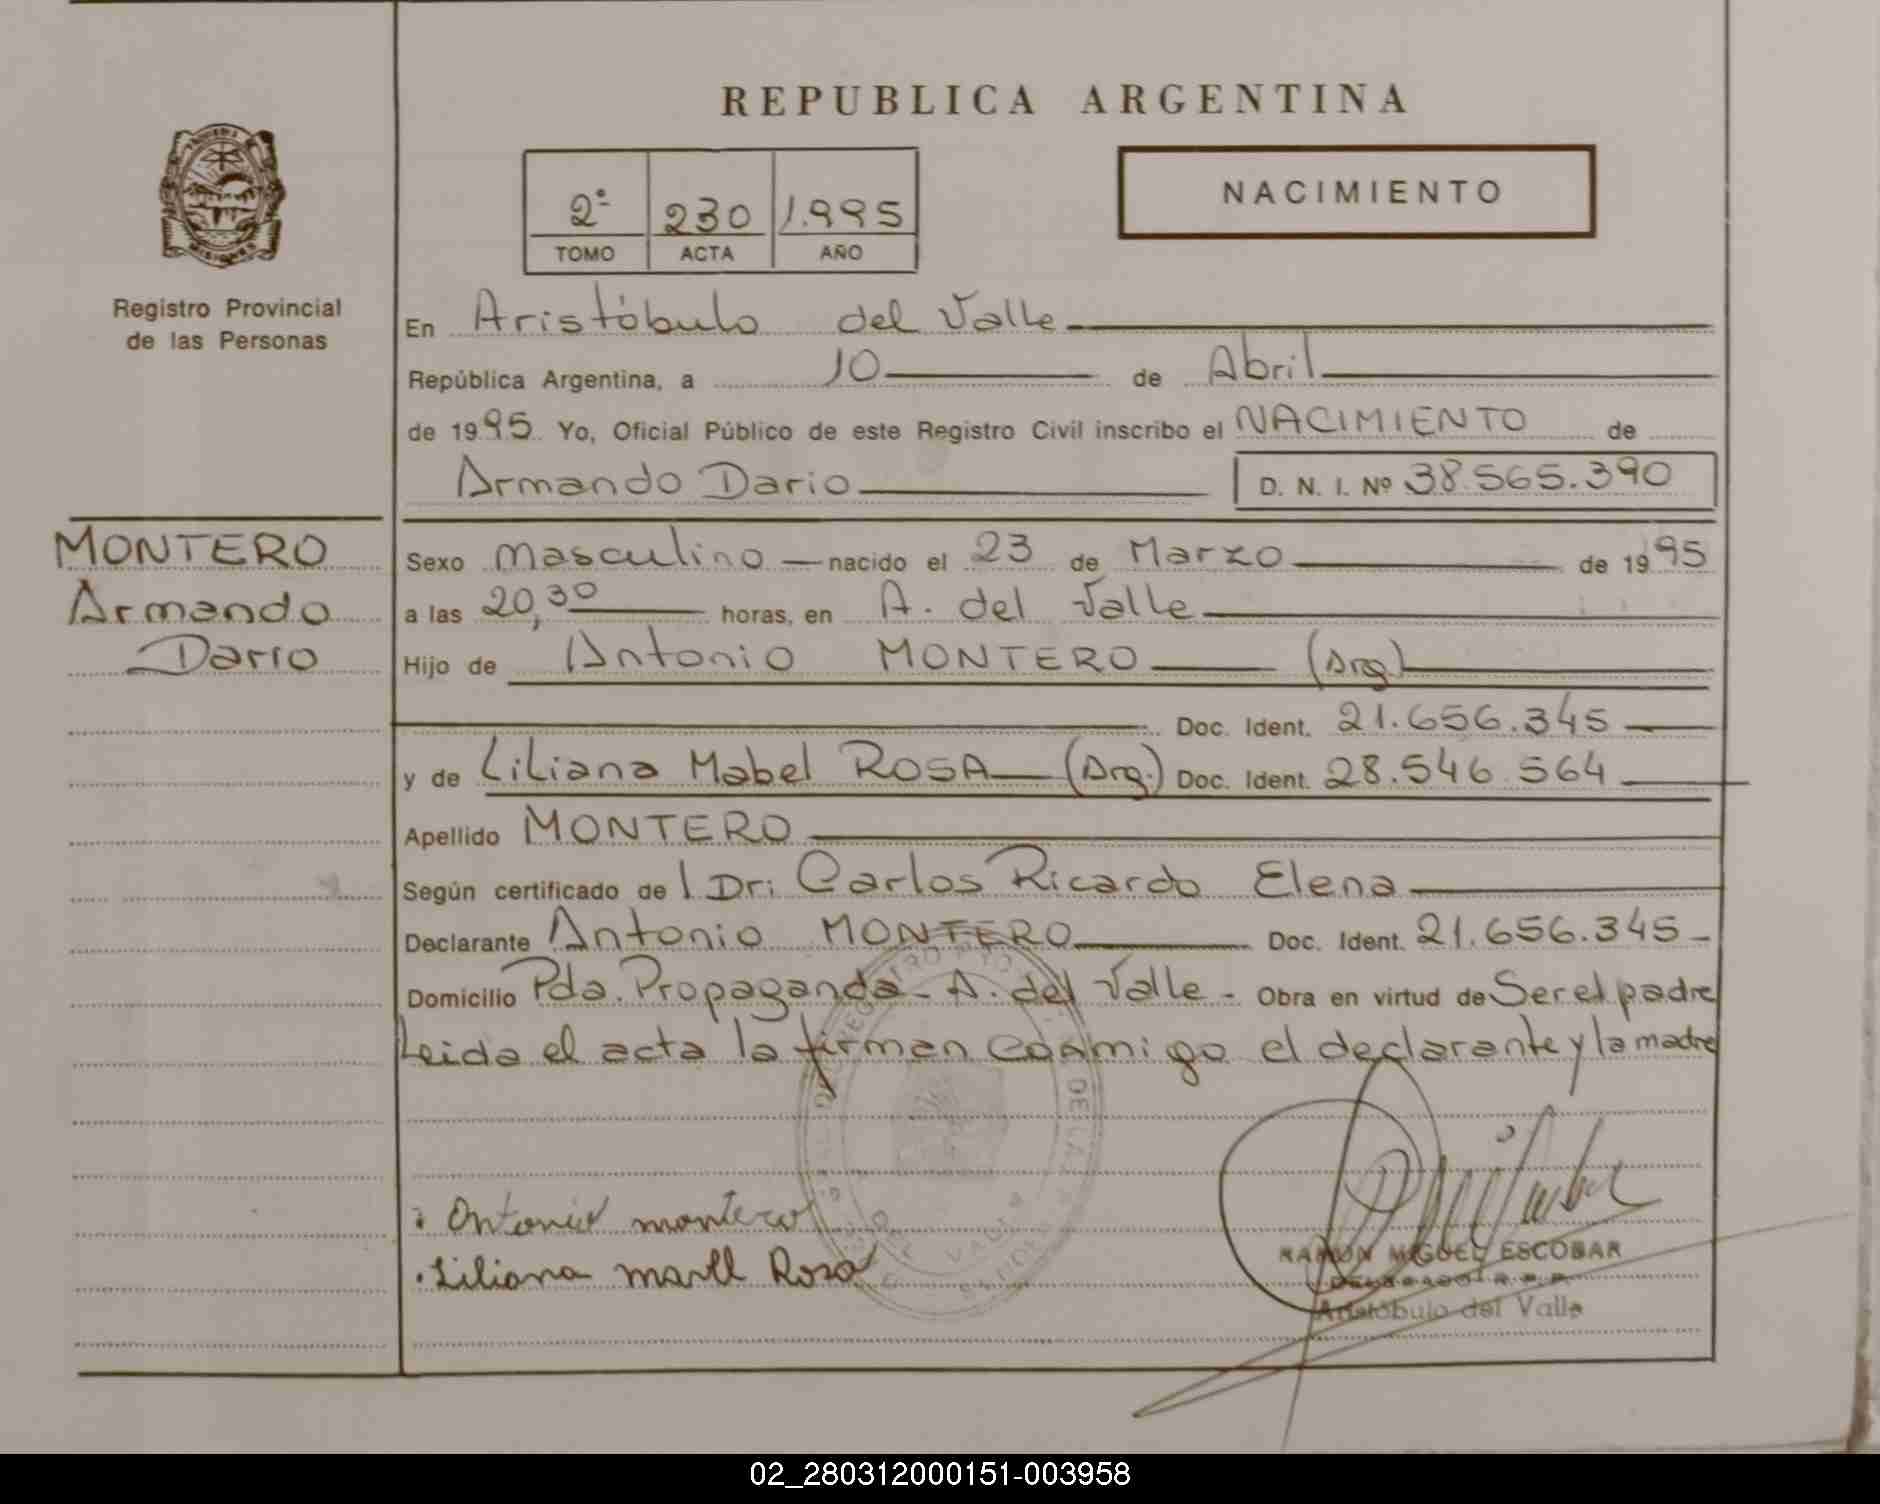 REPUBLICA ARGENTINA
NACIMIENTO
2º 230 1.995
TOMO ACTA AÑO
MISIONES
Registro Provincial
de las Personas
En Aristóbulo del Valle
República Argentina, a 10 de Abril
de 1995 Yo, Oficial Público de este Registro Civil inscribo el NACIMIENTO de
Armando Dario D. N. I. Nº 38.565.390
MONTERO
Armando
Dario
Sexo masculino nacido el 23 de Marzo de 1995
a las 20,30 horas, en A. del Valle
Hijo de Antonio MONTERO (Arg)
Doc. Ident. 21.656.345
y de Liliana Mabel ROSA (Arg.) Doc. Ident. 28.546.564
Apellido MONTERO
Según certificado de l Dr: Carlos Ricardo Elena
Declarante Antonio MONTERO Doc. Ident. 21.656.345
Domicilio Pda. Propaganda - A. del Valle - Obra en virtud de Ser el padre
Leida el acta la firman conmigo el declarante y la madre
Antonio montero
Liliana Rosa
RAMON MIGUEL ESCOBAR
DELEGADO R.P.P.
Aristóbulo del Valle
02_280312000151-003958